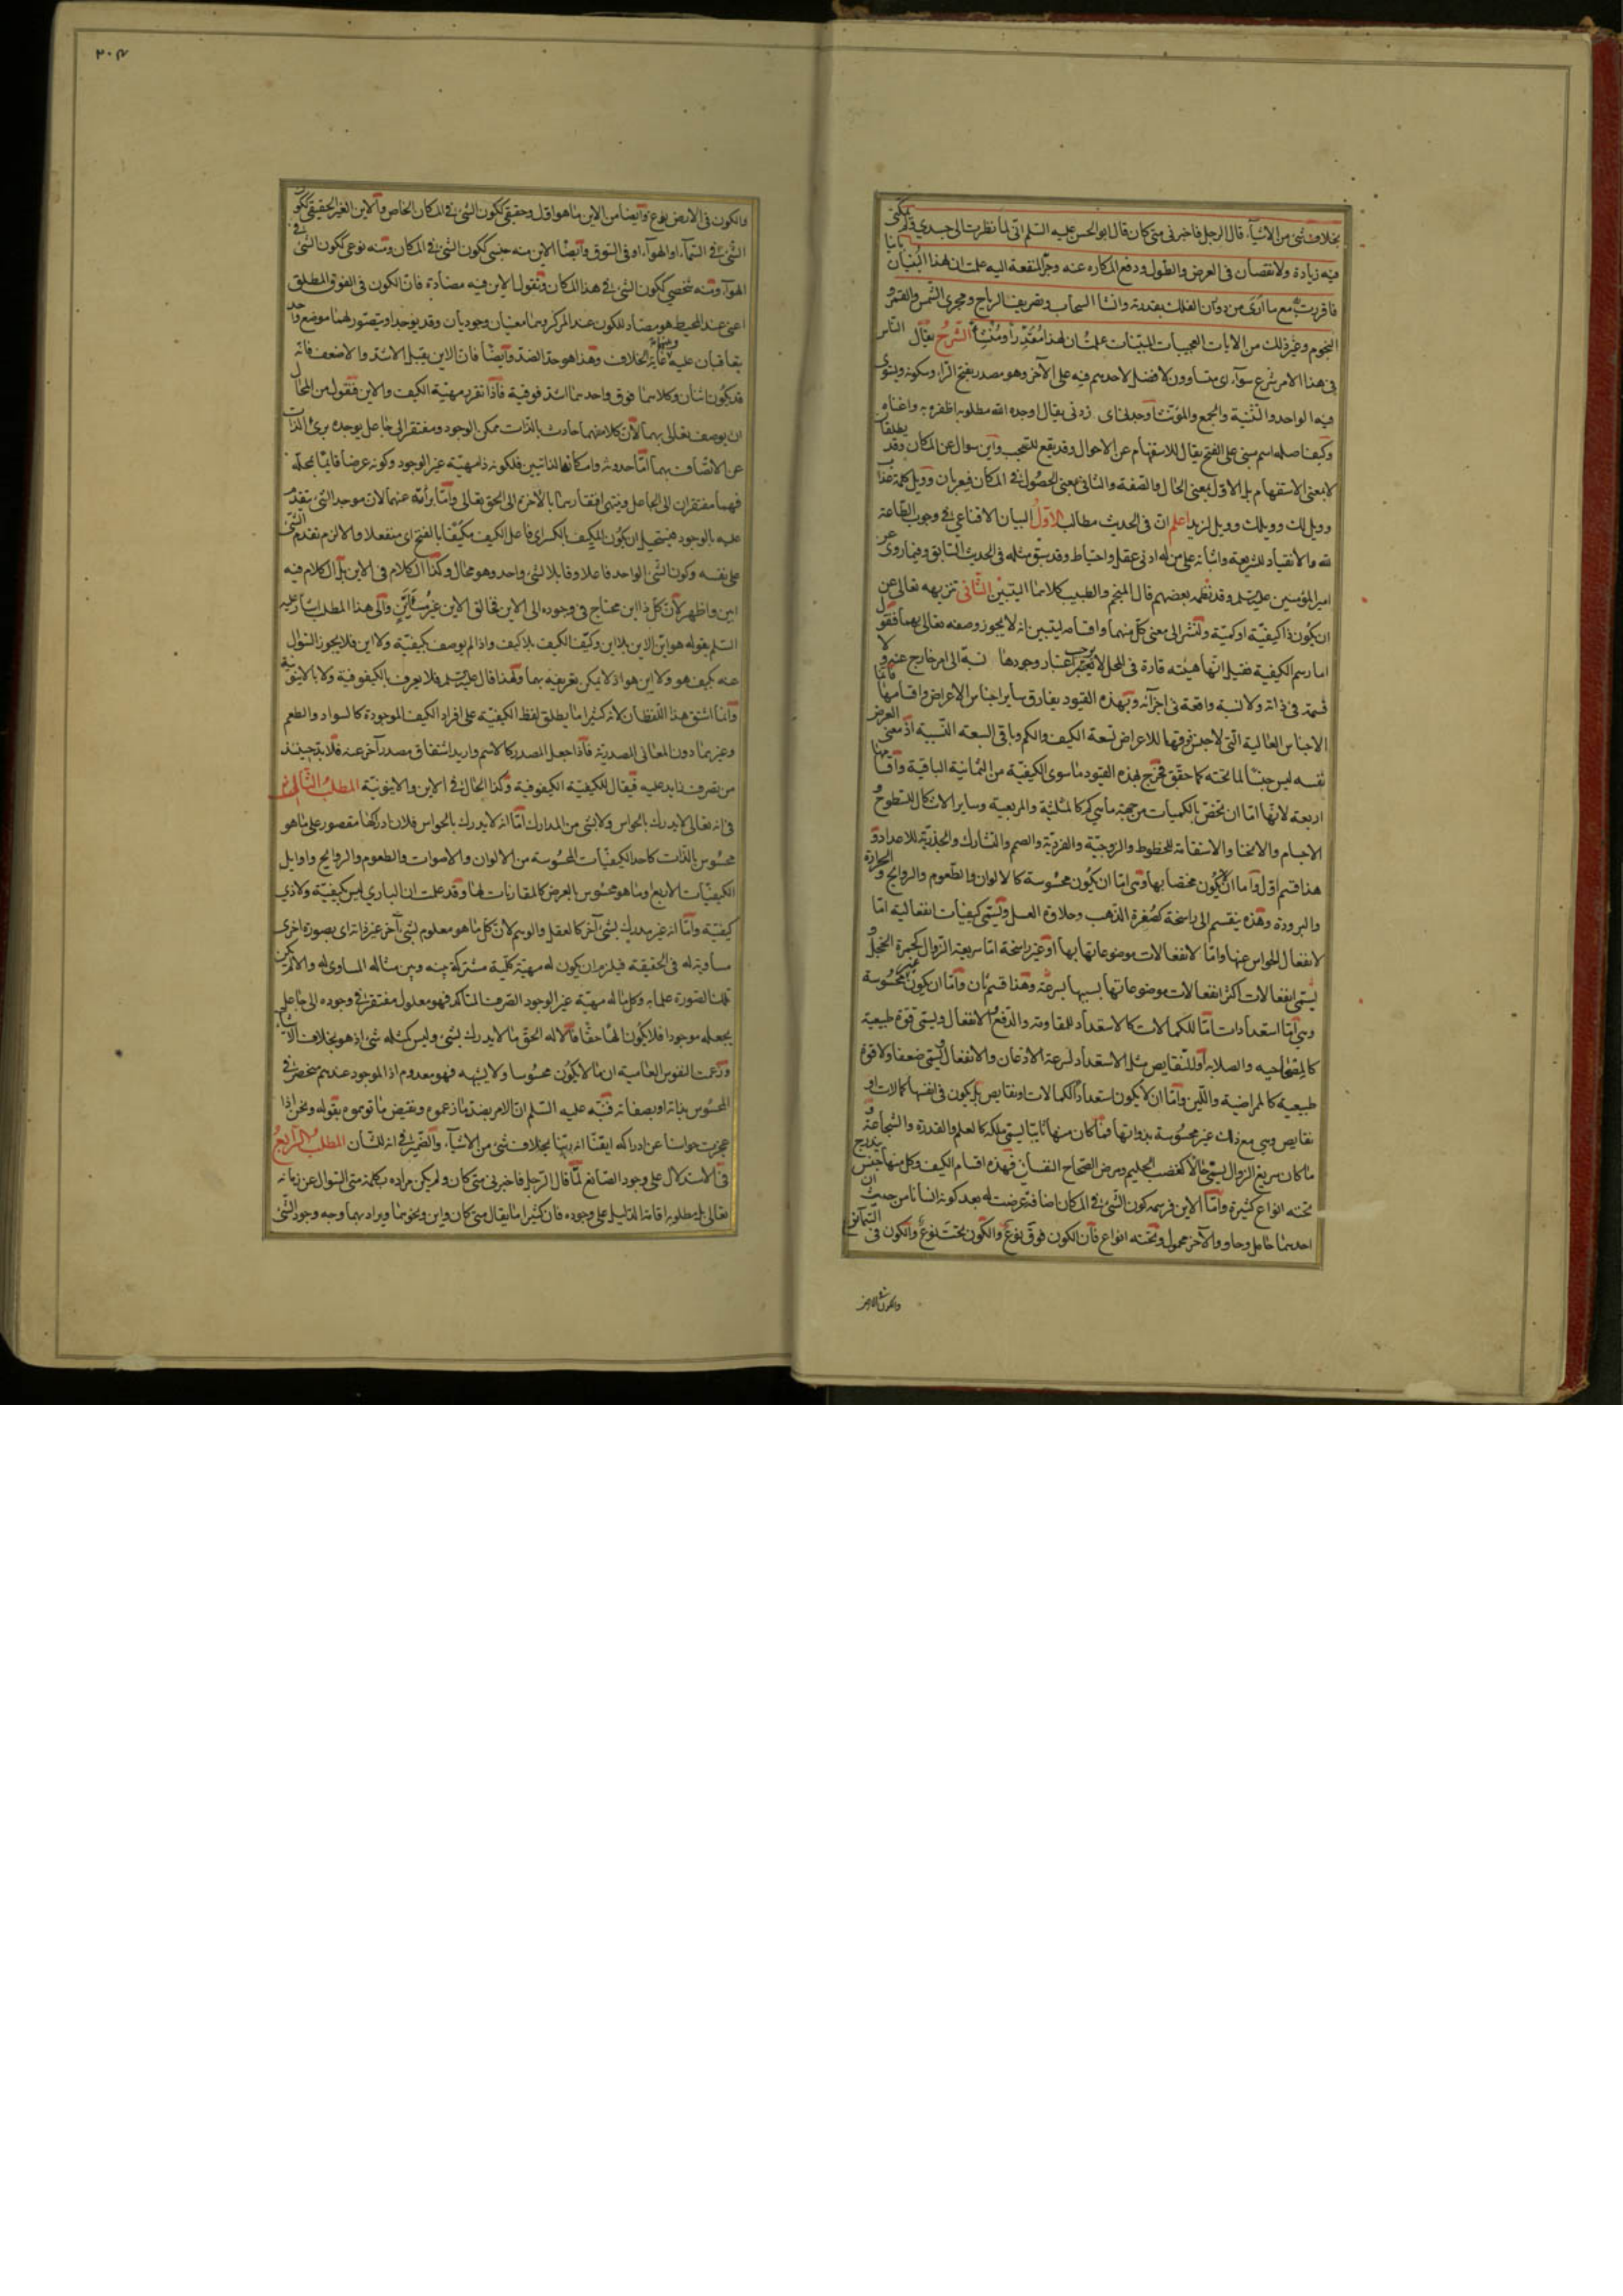 بخلاف شئ من الاشيآء قال الرجل فاخبرنى متى كان قال ابو الحسن عليه السلم انى لما نظرت الى جسدى ولم يمكننى
فيه زيادة ولا نقصان فى العرض والطول ودفع المكاره عنه وجر المنفعة اليه علمت ان لهذا البنيان بانيا
فاقررت به مع ما ارى من دوران الفلك بقدرته وانشا السحاب وتصريف الرياح ومجرى الشمس والقمر و
النجوم وغير ذلك من الايات العجيبات المبينات علمت ان لهذا مقدرا ومنشئا الشرح يقال الناس
فى هذا الامر شرع سوآء اى متساوون لا فضل لاحدهم فيه على الآخر وهو مصدر بفتح الرآء وسكونه ويستوى
فيه الواحد والتثنية والجمع والمؤنث اوجدنى اى زدنى يقال اوجده الله مطلوبه اظفره به واغناه
وكيف اصله اسم مبنى على الفتح يقال للاستفهام عن الاحوال وقد يقع للتعجب واين سوال عن المكان وقد يطلقان
لا بمعنى الاستفهام بل الاول بمعنى الحال والصفة والثانى بمعنى الحصول فى المكان فيعربان وويل كلمة عذاب
وويل لك وويلك وويل لزيد اعلم ان فى الحديث مطالب الاول البيان الاقناعى فى وجوب الطاعة
لله والانقياد للشريعة واثباته على من له ادنى عقل واحتياط وقد سبق مثله فى الحديث السابق وفيما روى عن
امير المؤمنين عليه السلم وقد نظمه بعضهم قال المنجم والطبيب كلاهما البيتين الثانى تنزيهه تعالى عن
ان يكون ذا كيفية او كمية ولنشر الى معنى كل منهما واقسامه ليتبين انه لا يجوز وصفه تعالى بهما فنقول
اما رسم الكيفية فقيل انها هيئة قارة فى المحل لا يوجب اعتبار وجودها نسبة الى امر خارج عنه ولا
قسمة فى ذاته ولا نسبة واقعة فى اجزآئه وبهذه القيود يفارق ساير اجناس الاعراض واقسامها فانما
الاجناس العالية التى لا جنس فوقها للاعراض تسعة الكيف والكم وباقى السبعة النسبية اذ معنى العرض
نفسه ليس جنسا لما تحته كما حقق فخرج بهذه القيود ما سوى الكيفية من الثمانية الباقية واقسامها
اربعة لانها اما ان تختص بالكميات من جهة ما هى كم كالمثلثية والمربعية وساير الاشكال للسطوح و
الاجسام والانحنا والاستقامة للخطوط والزوجية والفردية والصمم والتشارك والجذرية للاعداد و
هذا قسم اول واما ان لا يكون مختصا بها وهى اما ان يكون محسوسة كالالوان والطعوم والروايح والحرارة
والبرودة وهذه ينقسم الى راسخة كصفرة الذهب وحلاوة العسل ويسمى كيفيات انفعالية اما
لانفعال الحواس عنها واما لانفعالات موضوعاتها بها او غير راسخة اما سريعة الزوال كحمرة الخجل و
يسمى انفعالات لكثرة انفعالات موضوعاتها بسببها بسرعة وهذا قسم ثان واما ان يكون غير محسوسة
وهى اما استعدادات اما للكمالات كالاستعداد للمقاومة والدفع واللاانفعال ويسمى قوة طبيعية
كالمصحاحيه والصلابة او للنقايص مثل الاستعداد لسرعة الاذعان والانفعال ويسمى ضعفا ولا قوة
طبيعية كالممراضية واللين واما ان لا يكون استعدادا لكمالات او نقايص بل يكون فى انفسها كمالات او
نقايص وهى مع ذلك غير محسوسة بذواتها فما كان منها ثابتا يسمى ملكة كالعلم والقدرة والشجاعة و
ما كان سريع الزوال يسمى حالا كغضب الحليم ومرض الصحاح النفسانى فهذه اقسام الكيف وكل منها جنس يندرج
تحته انواع كثيرة واما الاين فرسمه كون الشئ فى المكان اضافة عرضت له بعد كونه انسانا من حيث ان
احدهما حامل وحاو والآخر محمول وتحته انواع فان الكون فوق نوع والكون تحت نوع والكون فى السمآء نوع
والكون فى الارض
٢٠٤
والكون فى الارض نوع وايضا من الاين ما هو اول وحقيقى ككون الشئ فى المكان الخاص والاين الغير الحقيقى ككون
الشئ فى السمآء او الهوآء او فى السوق وايضا الاين منه جنسى ككون الشئ فى المكان ومنه نوعى ككون الشئ فى
الهوآء ومنه شخصى ككون الشئ فى هذا المكان ونقول الاين فيه مضادة فان الكون فى الفوق المطلق
اعنى عند المحيط هو مضاد للكون عند المركز وهما معنيان وجوديان وقد يوجد او يتصور لهما موضع واحد
يتعاقبان عليه وبينهما غاية الخلاف وهذا هو حد الضد وايضا فان الاين يقبل الاشد والاضعف فانه
قد يكون اثنان وكلاهما فوق واحدهما اشد فوقية فاذا تقرر مهية الكيف والاين فنقول من المحال
ان يوصف تعالى بهما لان كلا منهما حادث بالذات ممكن الوجود ومفتقر الى جاعل يوجده برئ الذات
عن الاتصاف بهما اما حدوثه وامكانهما الذاتيين فلكونه ذا مهية غير الوجود وكونه عرضا قائما بمحله
فهما مفتقران الى الجاعل وينتهى افتقارهما بالآخرة الى الحق تعالى واما برائته عنهما لان موجد الشئ متقدم
عليه بالوجود فيستحيل ان يكون المكيف بالكسر اى فاعل الكيف مكيفا بالفتح اى منفعلا والا لزم تقدم الشئ
على نفسه وكون الشئ الواحد فاعلا وقابلا لشئ واحد وهو محال وكذا الكلام فى الاين بل الكلام فيه
ابين واظهر لان كل ذا اين محتاج فى وجوده الى الاين فخالق الاين غير متاين والى هذا المطلب اشار عليه
السلم بقوله هو اين الاين بلا اين وكيف الكيف بلا كيف واذا لم يوصف بكيفية ولا اين فلا يجوز السؤال
عنه بكيف هو ولا اين هو اذ لا يمكن تعريفه بهما ولهذا قال عليه السلم فلا يعرف بالكيفوفية ولا بالاينونية
وانما اشتق هذا اللفظان لانه كثيرا ما يطلق لفظ الكيفية على افراد الكيف الموجودة كالسواد والطعم
وغيرهما دون المعانى المصدرية فاذا جعل المصدر كالاسم واريد اشتقاق مصدر آخر عنه فلا بد حينئذ
من تصرف زايد عليه فيقال للكيفية الكيفوفية وكذا الحال فى الاين والاينونية المطلب الثالث
فى انه تعالى لا يدرك بالحواس ولا بشئ من المدارك اما انه لا يدرك بالحواس فلان ادراكها مقصور على ما هو
محسوس بالذات كاحد الكيفيات المحسوسة من الالوان والاصوات والطعوم والروايح واوايل
الكيفيات الاربع او ما هو محسوس بالعرض كالمقارنات لها وقد علمت ان البارى ليس بكيفية ولا ذى
كيفية واما انه غير مدرك بشئ آخر كالعقل والوهم لان كل ما هو معلوم بشئ آخر غير ذاته اى بصورة اخرى
مساوية له فى الحقيقة فيلزم ان يكون له مهية كلية مشتركة بينه وبين مثاله المساوى له والا لم يكن
تلك الصورة علما به وكل ما له مهية غير الوجود الصرف المتاكد فهو معلول مفتقر فى وجوده الى جاعل
يجعله موجودا فلا يكون الها حقا فالاله الحق ما لا يدرك بشئ وليس كمثله شئ اذ هو بخلاف الاشيآء
وزعمت النفوس العامية ان ما لا يكون محسوسا ولا يشبهه فهو معدوم اذ الموجود عندهم منحصر فى
المحسوس بذاته او بصفاته فنبه عليه السلم ان الامر بضد ما زعموه ونقيض ما توهموه بقوله ونحن اذا
عجزت حواسنا عن ادراكه ايقنا انه ربنا بخلاف شئ من الاشيآء والضمير فى انه للشان المطلب الرابع
فى الاستدلال على وجود الصانع لما قال الرجل فاخبرنى متى كان ولم يكن مراده بكلمة متى السوال عن زمانه
تعالى بل مطلوبه اقامة الدليل على وجوده فان كثيرا ما يقال متى كان واين ونحوهما ويراد بهما وجه وجود الشئ